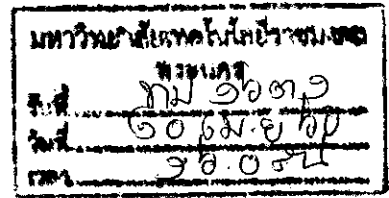 มหาวิทยาลัยเทคโนโลยีราชมงคล
พระนคร
รับที่ ทม ๑๖๓๑
วันที่ ๑๐ เม.ย ๖๐
เวลา